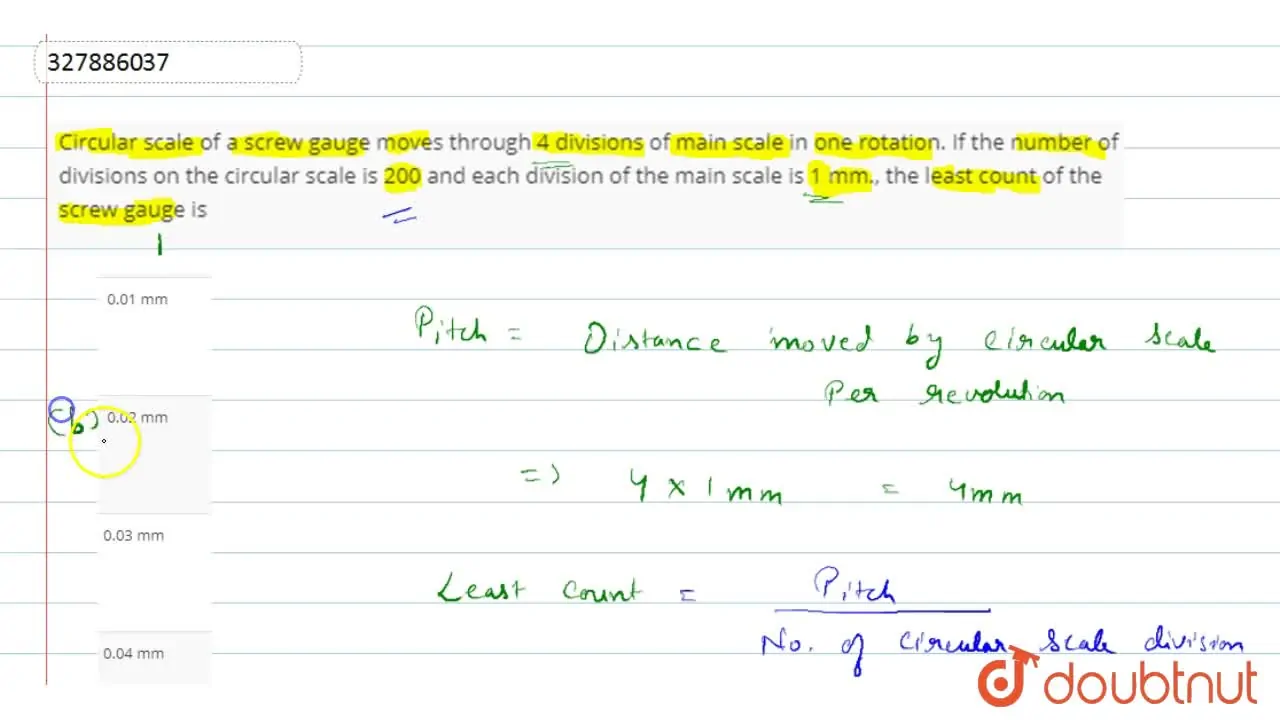 327886037
Circular scale of a screw gauge moves through 4 divisions of main scale in one rotation. If the number of
divisions on the circular scale is 200 and each division of the main scale is 1 mm., the least count of the
screw gauge is
0.01 mm
Pitch = Distance moved by circular scale
Per revolution
(b) 0.02 mm
=> 4 x 1 mm = 4mm
0.03 mm
Least count = Pitch
No. of circular scale division
0.04 mm
doubtnut